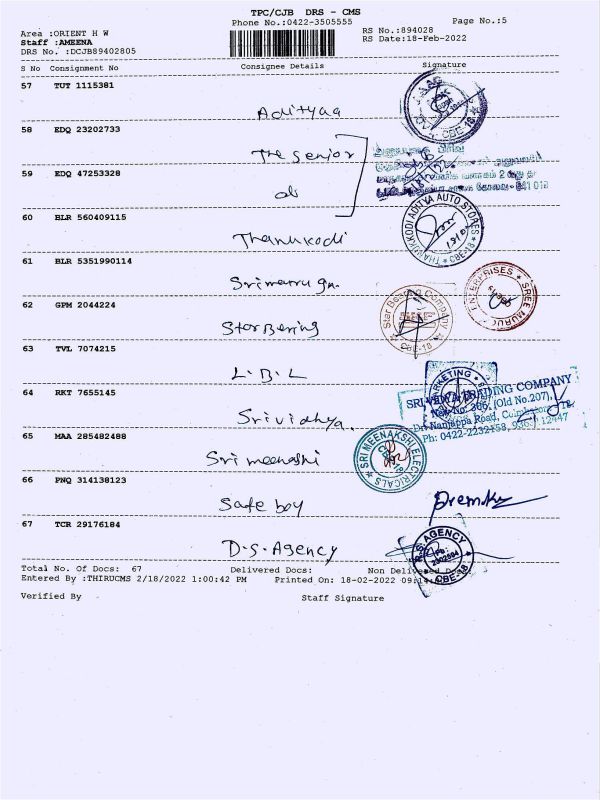 TPC/CJB DRS - CMS
Phone No.:0422-3505555
Page No.:5
Area :ORIENT H W
RS No.:894028
Staff :AMEENA
RS Date:18-Feb-2022
DRS No. :DCJB89402805
S No Consignment No Consignee Details Signature
57 TUT 1115381
Adityaa
CBE-18
58 EDQ 23202733
The Senior
59 EDQ 47253328
do
60 BLR 560409115
Thanukodi
THANUKODI ADITYA AUTO STORES
61 BLR 5351990114
ENTERPRISES SREE
62 GPM 2044224
Star Bering
Star Bearing Company
CBE-18
63 TVL 7074215
L.B.L
MARKETING
64 RKT 7655145
Srividhya.
SRI VIDYA TRADING COMPANY
New No. 306, (Old No.207),
Dr. Nanjappa Road, Coimbatore
Ph: 0422-2232158,
65 MAA 285482488
Sri meenashi
SRI MEENAKSHI ELECTRICALS
CBE-18
66 PNQ 314138123
Safe boy
67 TCR 29176184
D.S.Agency
AGENCY
CBE-18
Total No. Of Docs: 67 Delivered Docs: Non Delivered Docs:
Entered By :THIRUCMS 2/18/2022 1:00:42 PM Printed On: 18-02-2022 09:14
Verified By Staff Signature